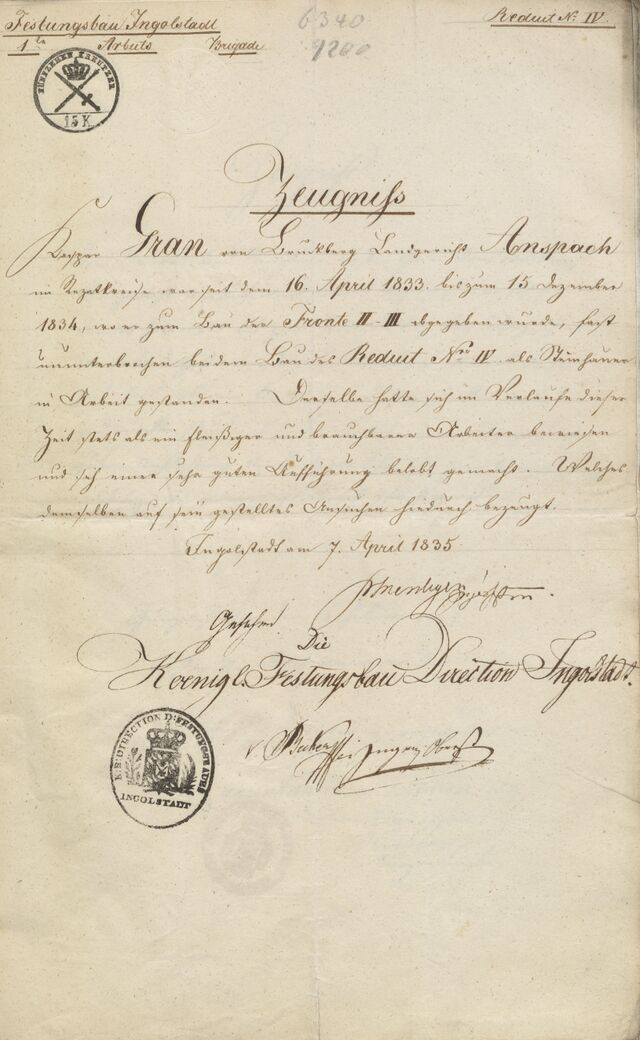 Festungsbau Ingolstadt
6340
Reduit No. IV.
1te Arbeits Brigade
9200
FÜNFZEHEN KREUTZER
15 K
Zeugniss
Kaspar Gran von Bruckberg Landgerichts Anspach
im Rezatkreise war seit dem 16. April 1833. bis zum 15 Dezember
1834, wo er zum Bau der Fronte II-III abgegeben wurde, fast
ununterbrochen bei dem Bau des Reduit Nro IV. als Steinhauer
in Arbeit gestanden. Derselbe hatte sich im Verlaufe dieser
Zeit stets als ein fleißiger und brauchbarer Arbeiter bewiesen
und sich einer sehr guten Aufführung belobt gemacht. Welches
demselben auf sein gestelltes Ansuchen hiedurch bezeugt.
Ingolstadt am 7. April 1835
Gesehen
Die
Koenigl. Festungsbau Direction Ingolstadt.
v Becker
INGOLSTADT